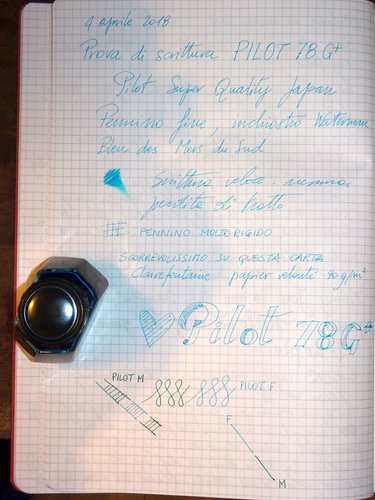 4 aprile 2018
Prova di scrittura PILOT 78 G+
Pilot Super Quality Japan
Pennino fine, inchiostro Waterman
Bleu des Mers du Sud
Scrittura veloce: nessuna
perdita di tratto
PENNINO MOLTO RIGIDO
SCORREVOLISSIMO SU QUESTA CARTA
Clairefontaine papier velouté 90 g/m²
Pilot 78G+
PILOT M
PILOT F
F
M